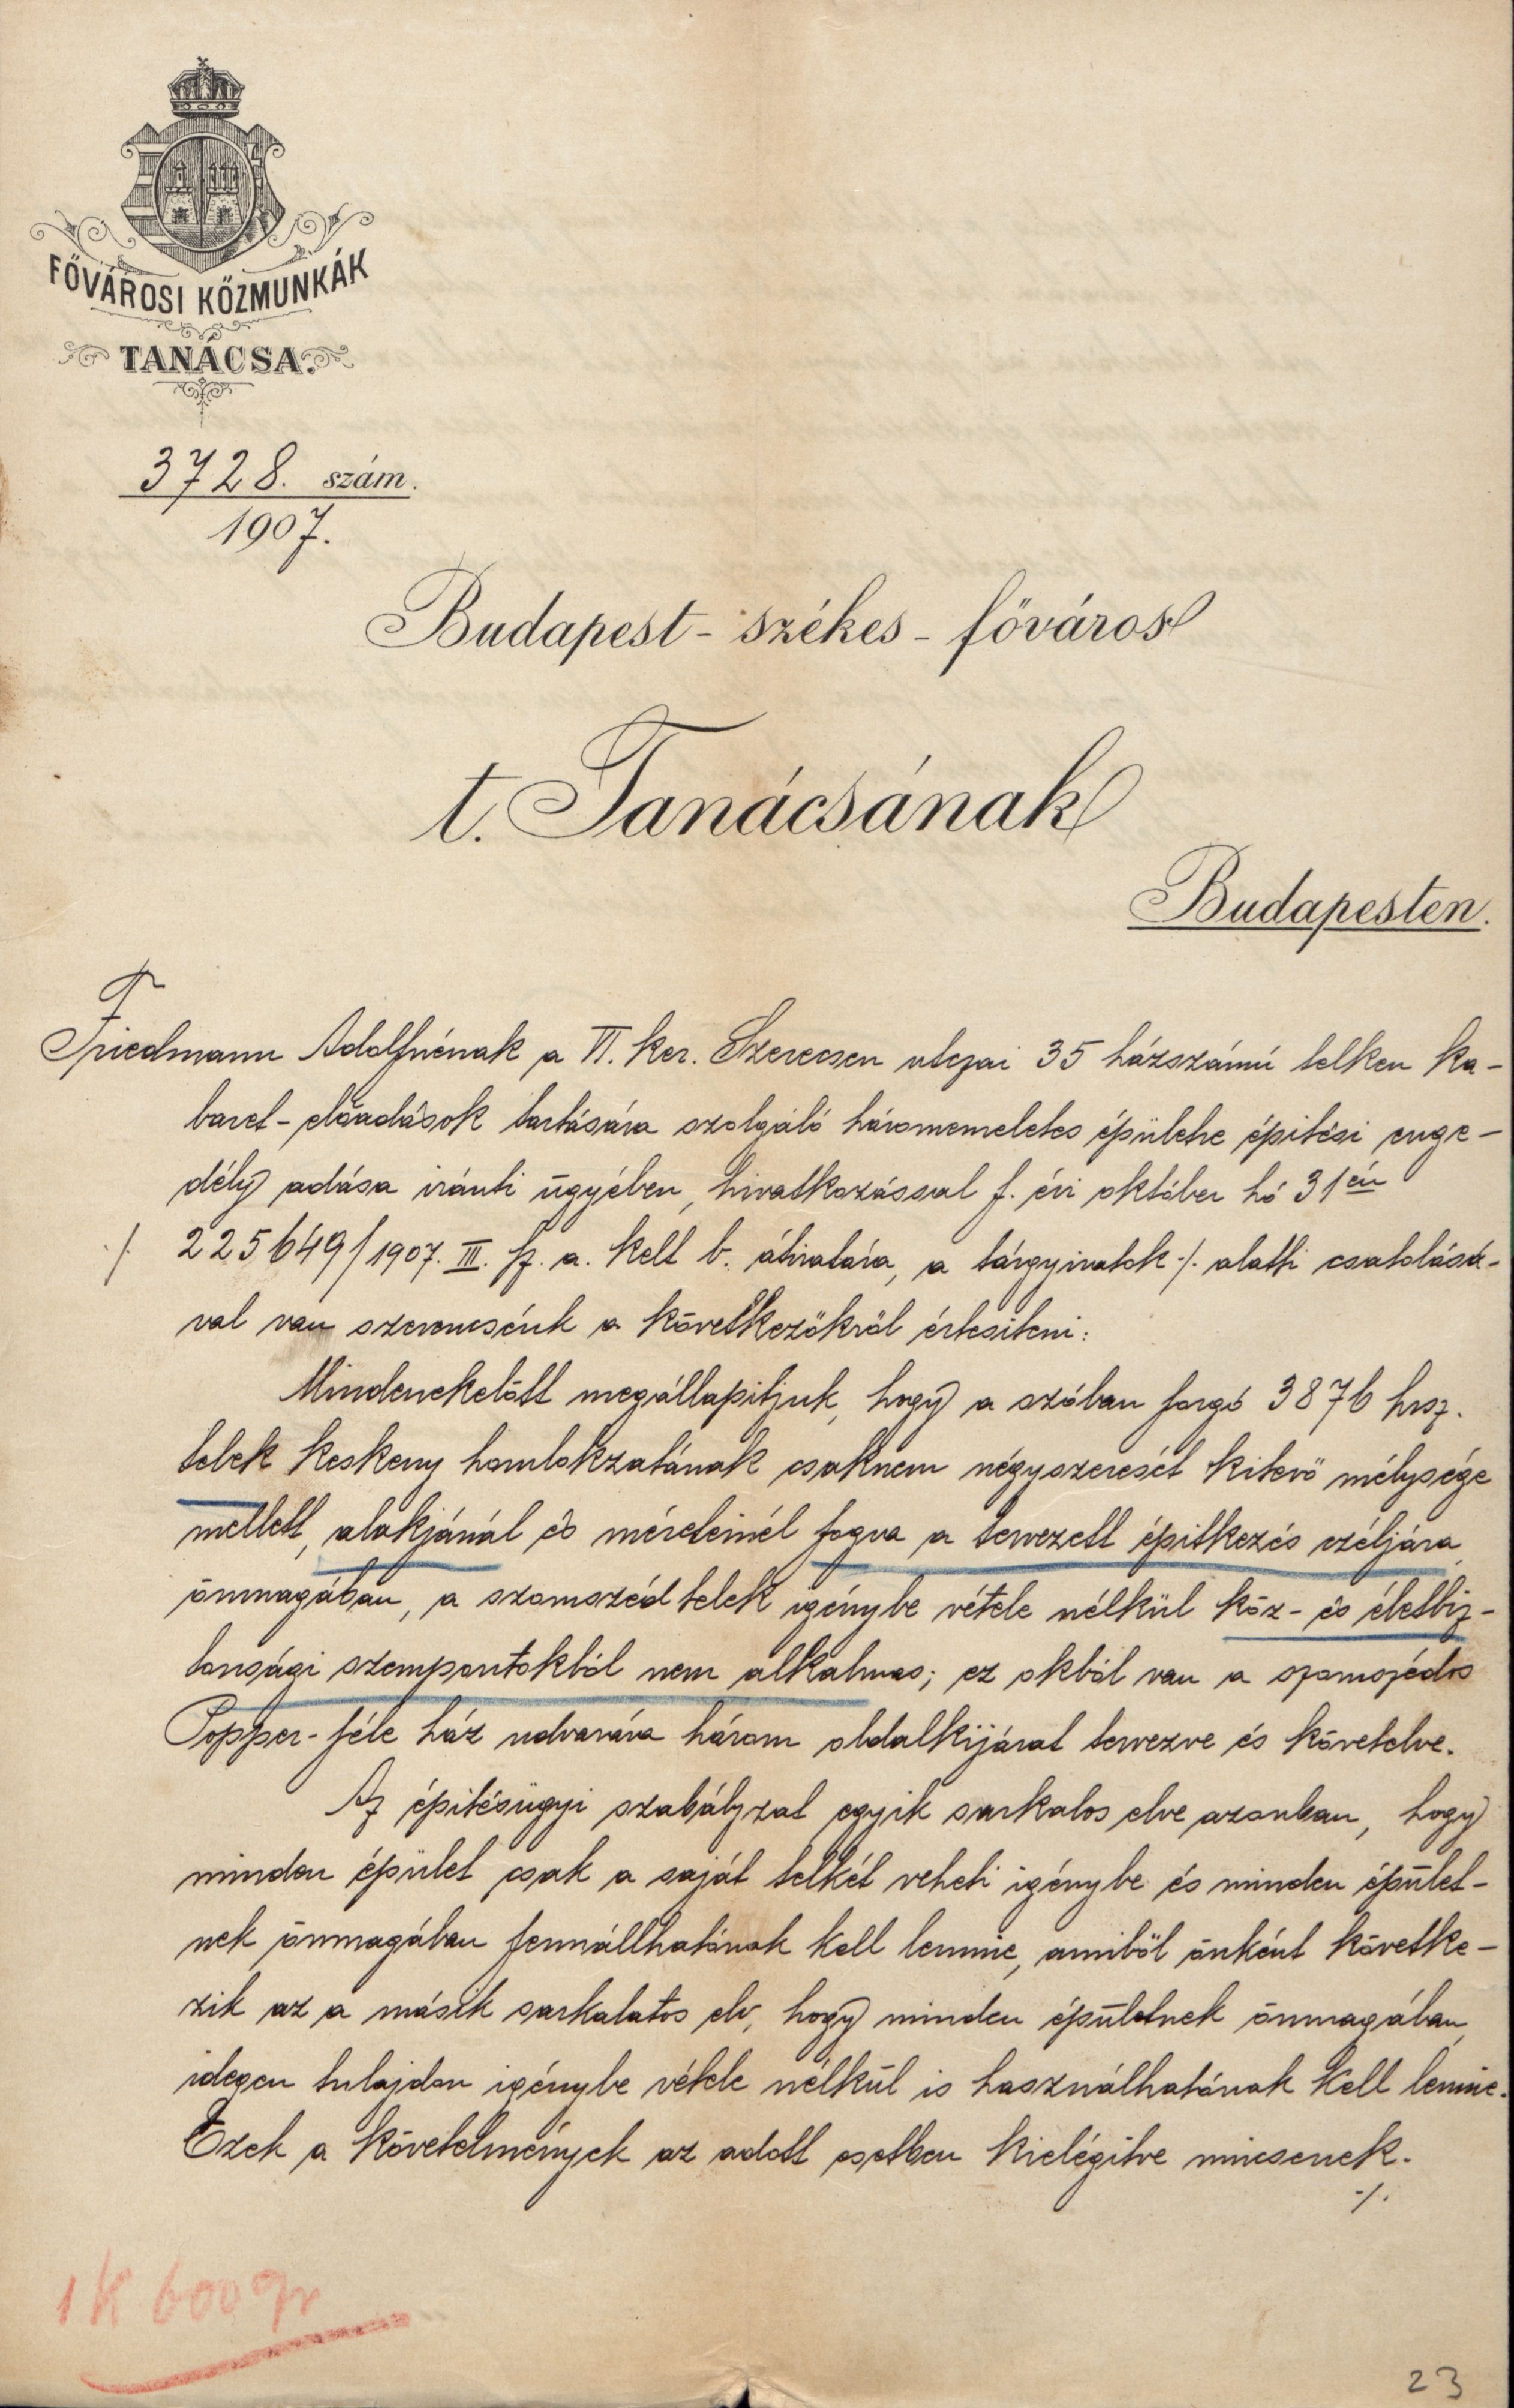 FŐVÁROSI KÖZMUNKÁK
TANÁCSA.
3728. szám.
1907.
Budapest-székes-főváros
t. Tanácsának
Budapesten.
Friedmann Adolfnénak a VI. ker. Szerecsen utczai 35 házszámú telken ka-
baret-előadások tartására szolgáló háromemeletes épületre épitési enge-
dély adása iránti ügyében, hivatkozással f. évi október hó 31én
./. 225649/1907. III. sz. a. kelt b. átiratára, a tárgyiratok ./. alatti csatolásá-
val van szerencsénk a következőkről értesiteni:
Mindenekelőtt megállapitjuk, hogy a szóban forgó 3876 hrsz.
telek keskeny homlokzatának csaknem négyszeresét kitevő mélysége
mellett, alakjánál és méreteinél fogva a tervezett épitkezés czéljára
önmagában, a szomszéd telek igénybe vétele nélkül köz- és életbiz-
tonsági szempontokból nem alkalmas; ez okból van a szomszédos
Popper-féle ház udvarára három oldalkijárat tervezve és követelve.
Az épitésügyi szabályzat egyik sarkalos elve azonban, hogy
minden épület csak a saját telkét veheti igénybe és minden épület-
nek önmagában fennállhatónak kell lennie, amiből önként követke-
zik az a másik sarkalatos elv, hogy minden épületnek önmagában,
idegen tulajdon igénybe vétele nélkül is használhatónak kell lennie.
Ezek a követelmények az adott esetben kielégitve nincsenek.
./.
1 K 600 gr
23